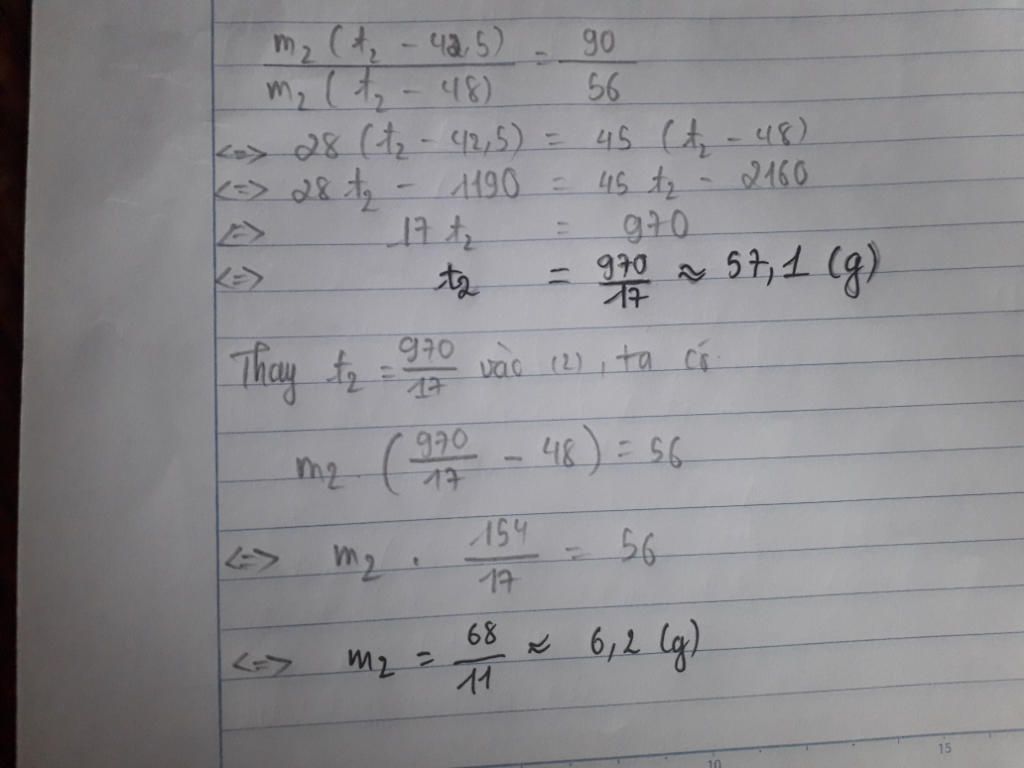 m₂ (t₂ - 42,5) / m₂ (t₂ - 48) = 90 / 56
<=> 28 (t₂ - 42,5) = 45 (t₂ - 48)
<=> 28 t₂ - 1190 = 45 t₂ - 2160
<=> 17 t₂ = 970
<=> t₂ = 970/17 ≈ 57,1 (g)
Thay t₂ = 970/17 vào (2), ta có
m₂ . (970/17 - 48) = 56
<=> m₂ . 154/17 = 56
<=> m₂ = 68/11 ≈ 6,2 (g)
10 15